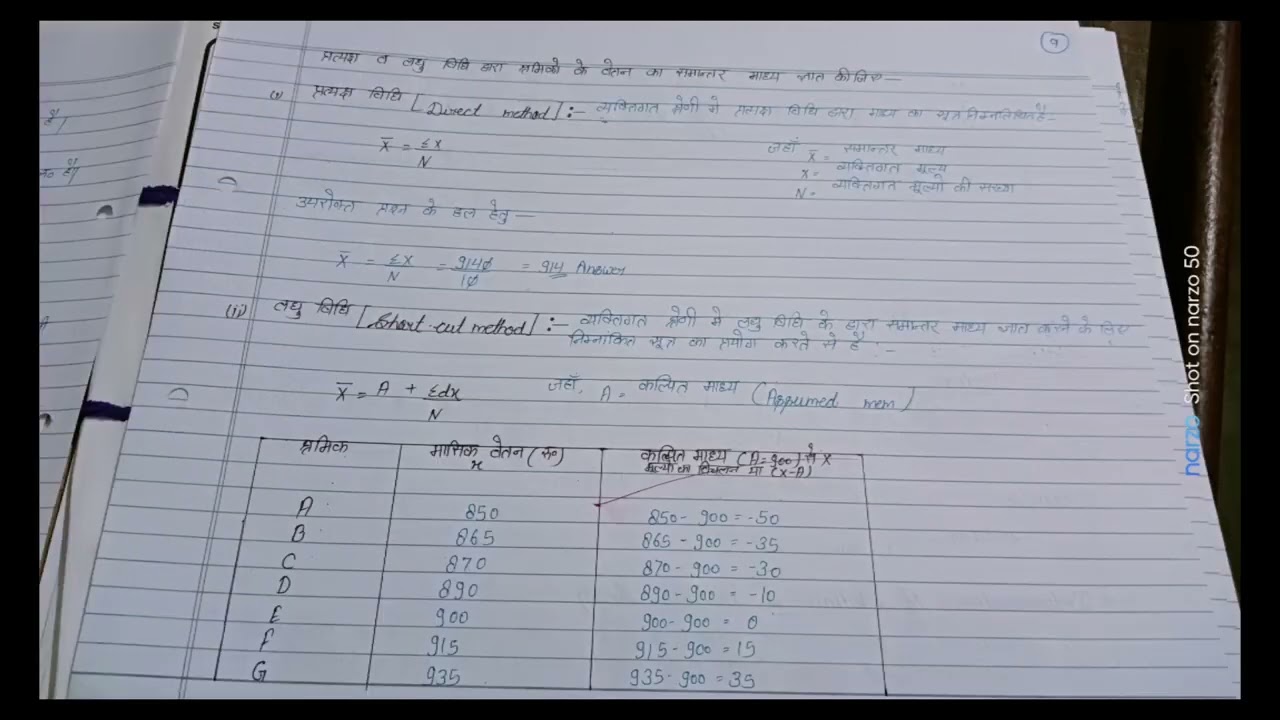 9
प्रत्यक्ष व लघु विधि द्वारा श्रमिको के वेतन का समान्तर माध्य ज्ञात कीजिए—
(i) प्रत्यक्ष विधि [Direct method] :- व्यक्तिगत श्रेणी मे प्रत्यक्ष विधि द्वारा माध्य का सूत्र निम्नलिखित है-
X̄ = ΣX/N
जहाँ X̄ = समान्तर माध्य
X = व्यक्तिगत मूल्य
N = व्यक्तिगत मूल्यो की संख्या
उपरोक्त प्रश्न के हल हेतु —
X̄ = ΣX/N = 9140/10 = 914 Answer
(ii) लघु विधि [Short-cut method] :- व्यक्तिगत श्रेणी मे लघु विधि के द्वारा समान्तर माध्य ज्ञात करने के लिए
निम्नांकित सूत्र का प्रयोग करते से है :-
X̄ = A + Σdx/N जहाँ, A = कल्पित माध्य (Assumed mem)
श्रमिक मासिक वेतन (रू०) कल्पित माध्य (A=900) से X
x मूल्यो का विचलन मा (X-A)
A 850 850 - 900 = -50
B 865 865 - 900 = -35
C 870 870 - 900 = -30
D 890 890 - 900 = -10
E 900 900 - 900 = 0
F 915 915 - 900 = 15
G 935 935 - 900 = 35
है।
है।
narzo Shot on narzo 50